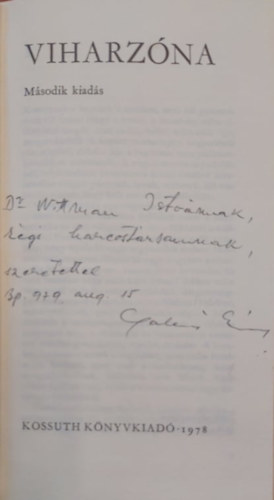 VIHARZÓNA
Második kiadás
Dr Wittman Istvánnak,
régi harcostársamnak,
szeretettel
Bp. 979 aug. 15
KOSSUTH KÖNYVKIADÓ·1978